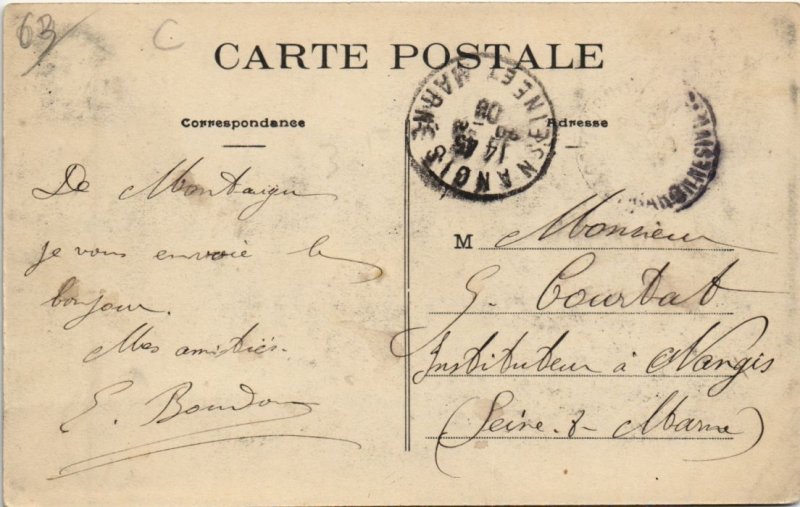 63
C
CARTE POSTALE
Correspondance
Adresse
NANGIS SEINE ET MARNE
14 45
08
De Montaigu
je vous envoie le
bonjour.
Mes amitiés.
E. Boudon
M Monsieur
G. Courtat
Instituteur à Nangis
(Seine-&-Marne)